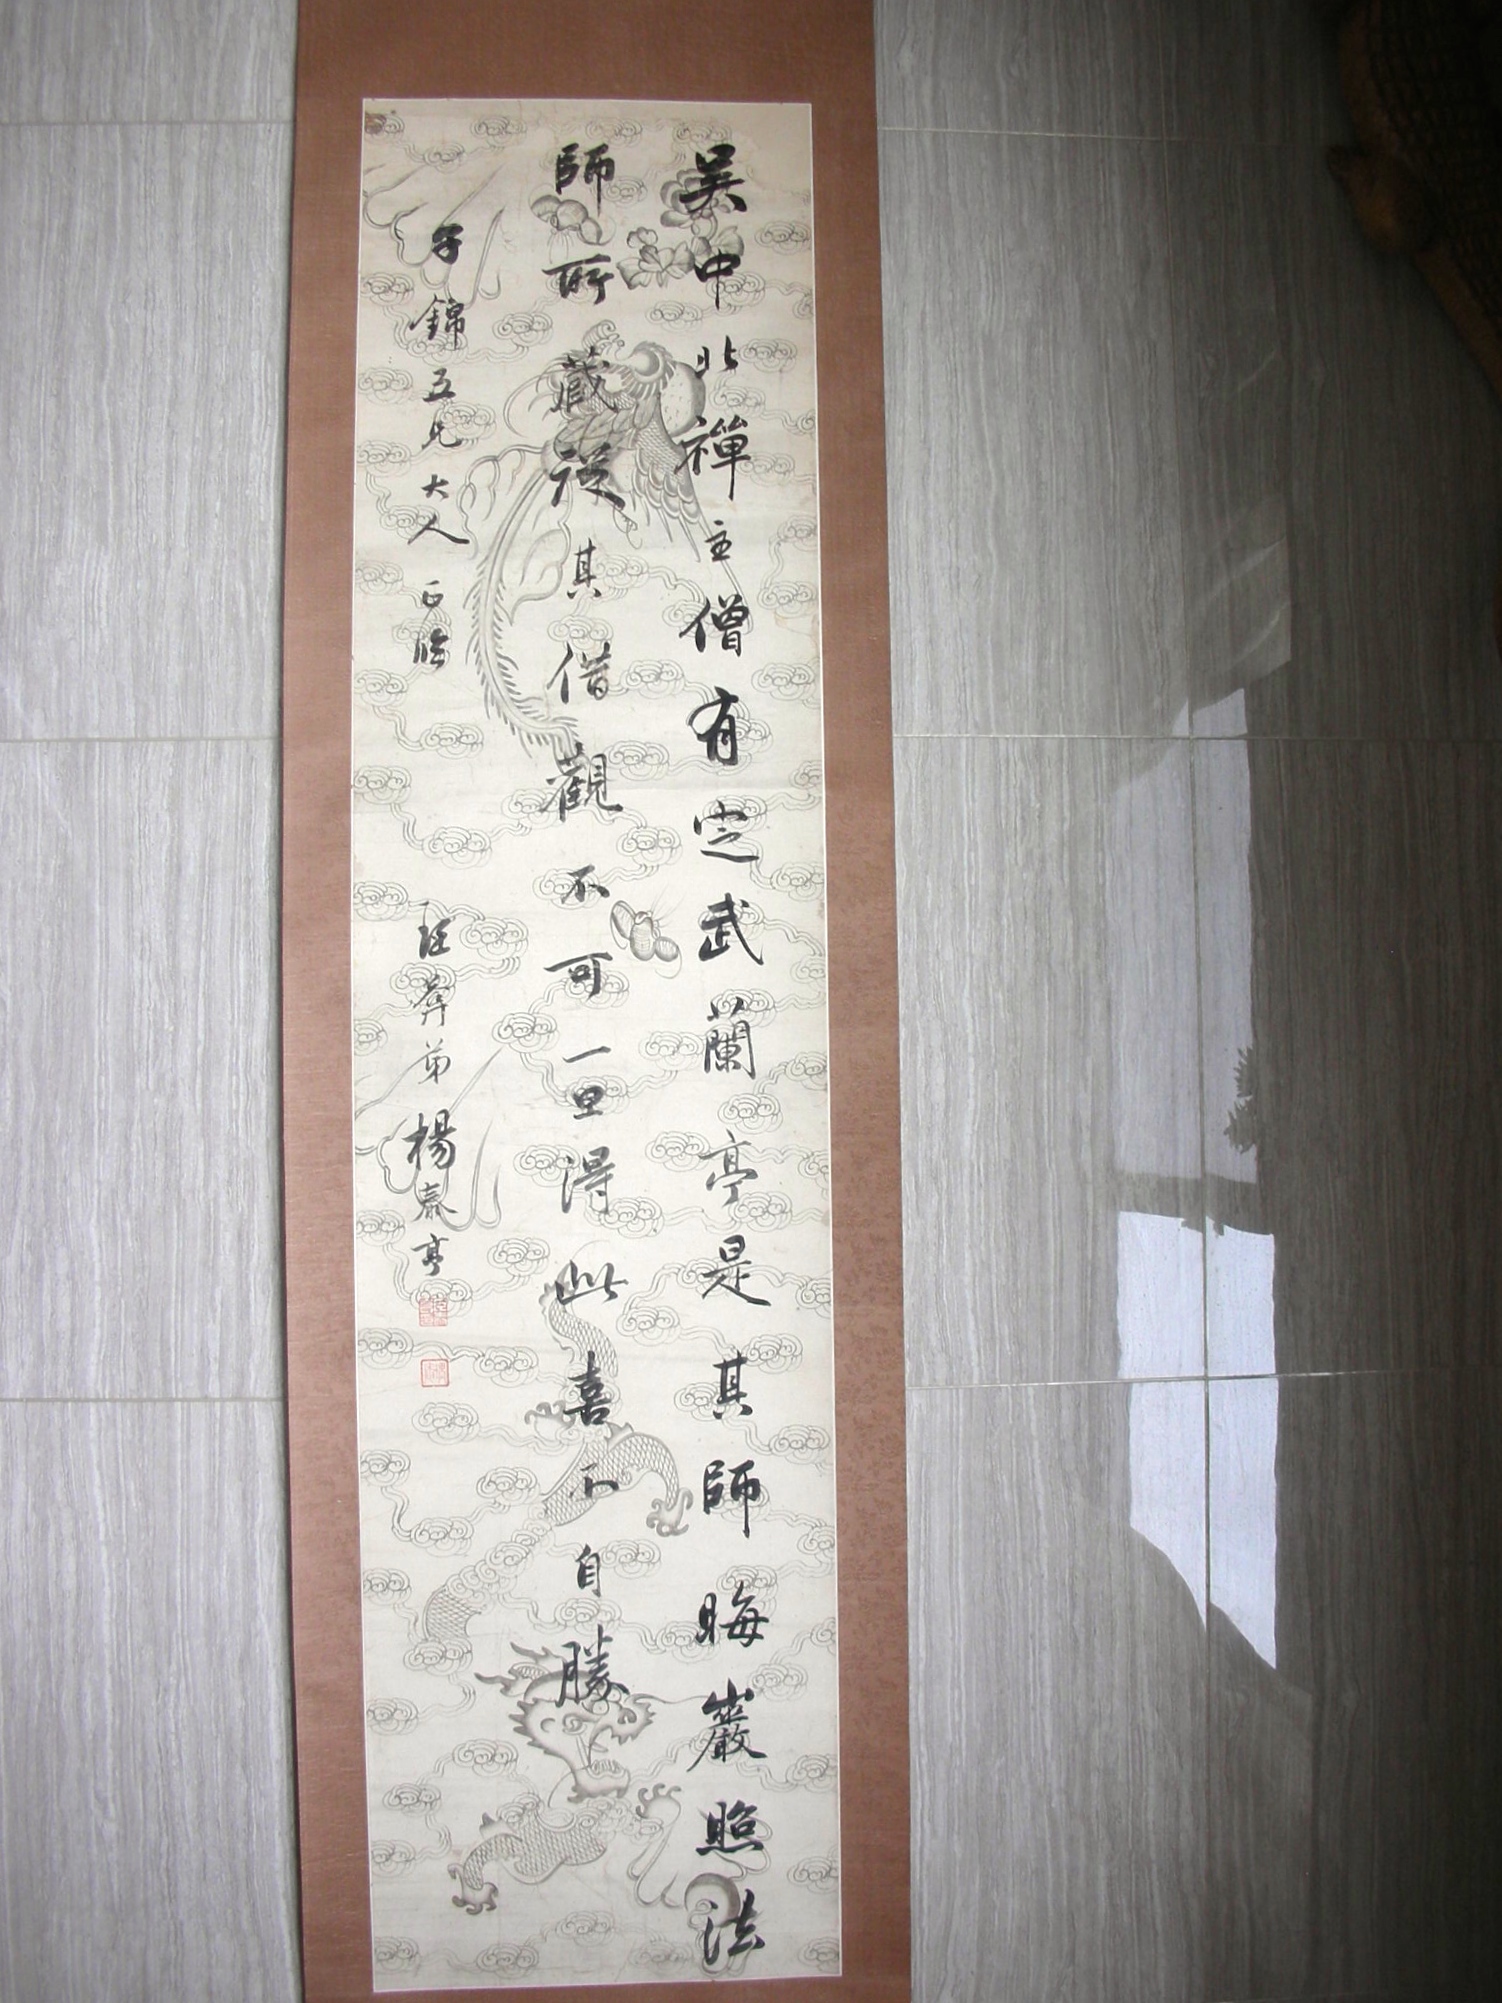 吳中北禪主僧有定武蘭亭是其師晦巖照法
師所藏從其借觀不可一旦得此喜不自勝
子錦五兄大人正臨
弟楊泰亨